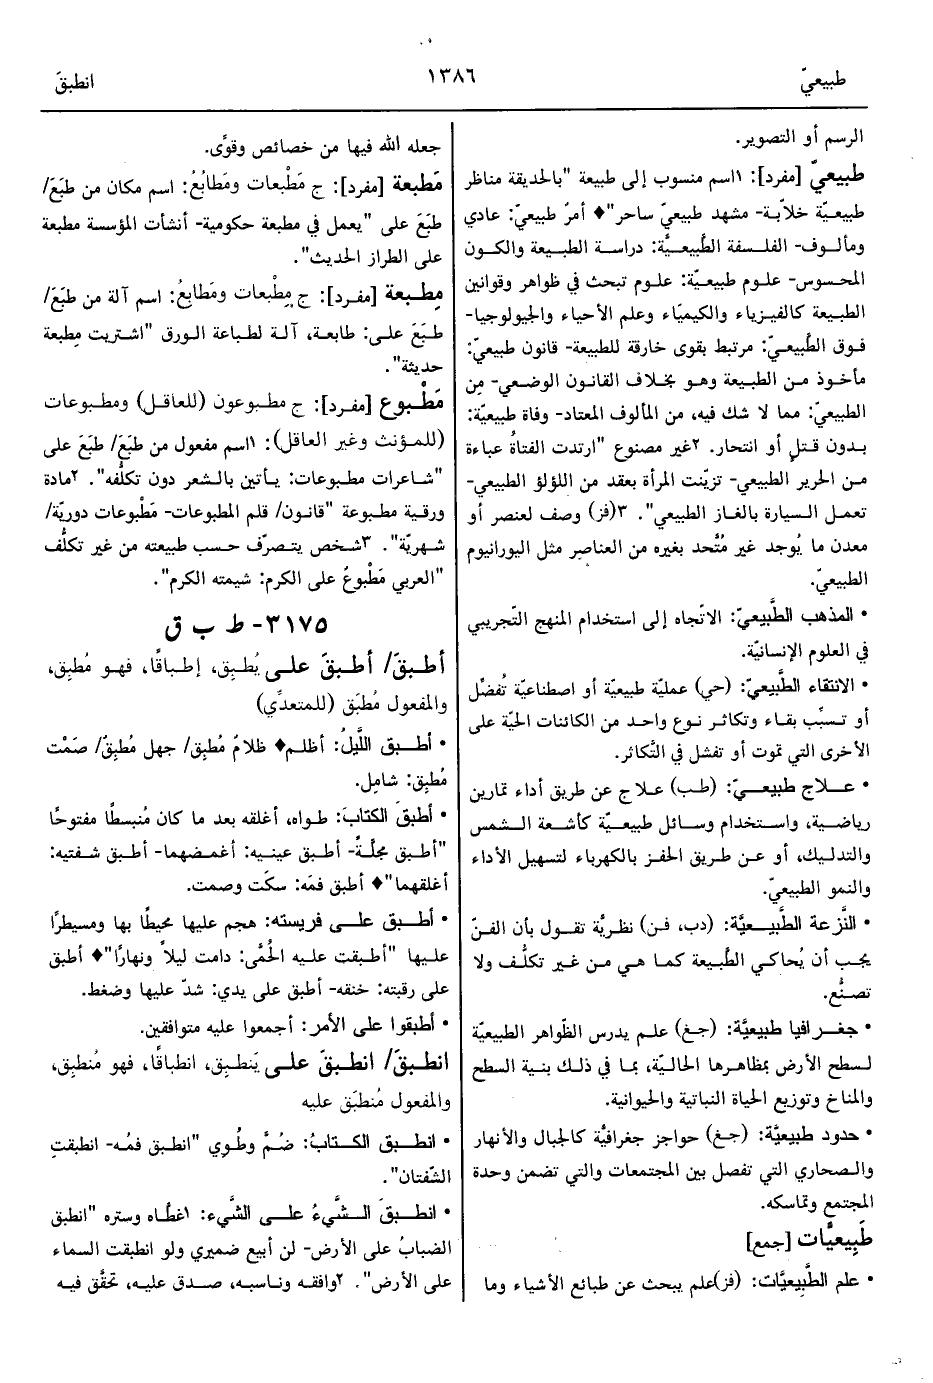 طبيعيّ
١٣٨٦
انطبقَ
الرسم أو التصوير.
طبيعيّ [مفرد]: ١اسم منسوب إلى طبيعة "بالحديقة مناظر
طبيعيّة خلاّبة- مشهد طبيعيّ ساحر"♦ أمرٌ طبيعيّ: عادي
ومألوف- الفلسفة الطَّبيعيَّة: دراسة الطبيعة والكون
المحسوس- علوم طبيعيّة: علوم تبحث في ظواهر وقوانين
الطبيعة كالفيزياء والكيمياء وعلم الأحياء والجيولوجيا-
فوق الطَّبيعيّ: مرتبط بقوى خارقة للطبيعة- قانون طبيعيّ:
مأخوذ من الطبيعة وهو بخلاف القانون الوضعي- مِن
الطبيعيّ: مما لا شك فيه، من المألوف المعتاد- وفاة طبيعيّة:
بدون قتلٍ أو انتحار. ٢غير مصنوع "ارتدت الفتاةُ عباءة
من الحرير الطبيعي- تزيّنت المرأة بعقد من اللؤلؤ الطبيعي-
تعمل السيارة بالغاز الطبيعي". ٣(فز) وصف لعنصر أو
معدن ما يُوجد غير مُتَّحد بغيره من العناصر مثل اليورانيوم
الطبيعيّ.
• المذهب الطَّبيعيّ: الاتّجاه إلى استخدام المنهج التّجريبي
في العلوم الإنسانيّة.
• الانتقاء الطَّبيعيّ: (حي) عمليّة طبيعيّة أو اصطناعيّة تُفضِّل
أو تسبِّب بقاء وتكاثر نوع واحد من الكائنات الحيّة على
الأخرى التي تموت أو تفشل في التَّكاثر.
• علاج طبيعيّ: (طب) علاج عن طريق أداء تمارين
رياضية، واستخدام وسائل طبيعيّة كأشعة الشمس
والتدليك، أو عن طريق الحفز بالكهرباء لتسهيل الأداء
والنمو الطبيعيّ.
• النَّزعة الطَّبيعيَّة: (دب، فن) نظريّة تقول بأن الفنّ
يجب أن يُحاكي الطَّبيعة كما هي من غير تكلُّف ولا
تصنُّع.
• جغرافيا طبيعيَّة: (جغ) علم يدرس الظّواهر الطبيعيّة
لسطح الأرض بمظاهرها الحاليّة، بما في ذلك بنية السطح
والمناخ وتوزيع الحياة النباتية والحيوانية.
• حدود طبيعيَّة: (جغ) حواجز جغرافيَّة كالجبال والأنهار
والصحاري التي تفصل بين المجتمعات والتي تضمن وحدة
المجتمع وتماسكه.
طَبيعيَّات [جمع]
• علم الطَّبيعيَّات: (فز)علم يبحث عن طبائع الأشياء وما
جعله الله فيها من خصائص وقوًى.
مَطبعة [مفرد]: ج مَطْبعات ومَطابُعُ: اسم مكان من طبَعَ/
طبَعَ على "يعمل في مطبعة حكومية- أنشأت المؤسسة مطبعة
على الطراز الحديث".
مِطبعة [مفرد]: ج مِطْبعات ومَطابعُ: اسم آلة من طبَعَ/
طبَعَ على: طابعة، آلة لطباعة الورق "اشتريت مِطبعة
حديثة".
مَطْبوع [مفرد]: ج مطبوعون (للعاقل) ومطبوعات
(للمؤنث وغير العاقل): ١اسم مفعول من طبَعَ/ طبَعَ على
"شاعرات مطبوعات: يأتين بالشعر دون تكلُّفه". ٢مادة
ورقية مطبوعة "قانون/ قلم المطبوعات- مَطْبوعات دوريّة/
شهريّة". ٣شخص يتصرّف حسب طبيعته من غير تكلُّف
"العربي مَطْبوعٌ على الكرم: شيمته الكرم".
٣١٧٥- ط ب ق
أطبقَ/ أطبقَ على يُطبِق، إطباقًا، فهو مُطبِق،
والمفعول مُطبَق (للمتعدِّي)
• أطبق اللَّيلُ: أظلم♦ ظلامٌ مُطبِق/ جهل مُطبِقٌ/ صَمْت
مُطبِق: شامِل.
• أطبقَ الكتابَ: طواه، أغلقه بعد ما كان مُنبسطًا مفتوحًا
"أطبق مجلّةً- أطبق عينيه: أغمضهما- أطبق شفتيه:
أغلقهما"♦ أطبق فمَه: سكَت وصمت.
• أطبق على فريسته: هجم عليها محيطًا بها ومسيطرًا
عليها "أطبقت عليه الحُمَّى: دامت ليلاً ونهارًا"♦ أطبق
على رقبته: خنقه- أطبق على يدي: شدّ عليها وضغط.
• أطبقوا على الأمر: أجمعوا عليه متوافقين.
انطبقَ/ انطبقَ على يَنطبِق، انطباقًا، فهو مُنطبِق،
والمفعول مُنطبَق عليه
• انطبق الكتابُ: ضُمَّ وطُوي "انطبق فمُه- انطبقتِ
الشّفتان".
• انطبقَ الشَّيءُ على الشَّيء: ١غطَّاه وستره "انطبق
الضبابُ على الأرض- لن أبيع ضميري ولو انطبقت السماء
على الأرض". ٢وافقه وناسبه، صدق عليه، تحقَّق فيه